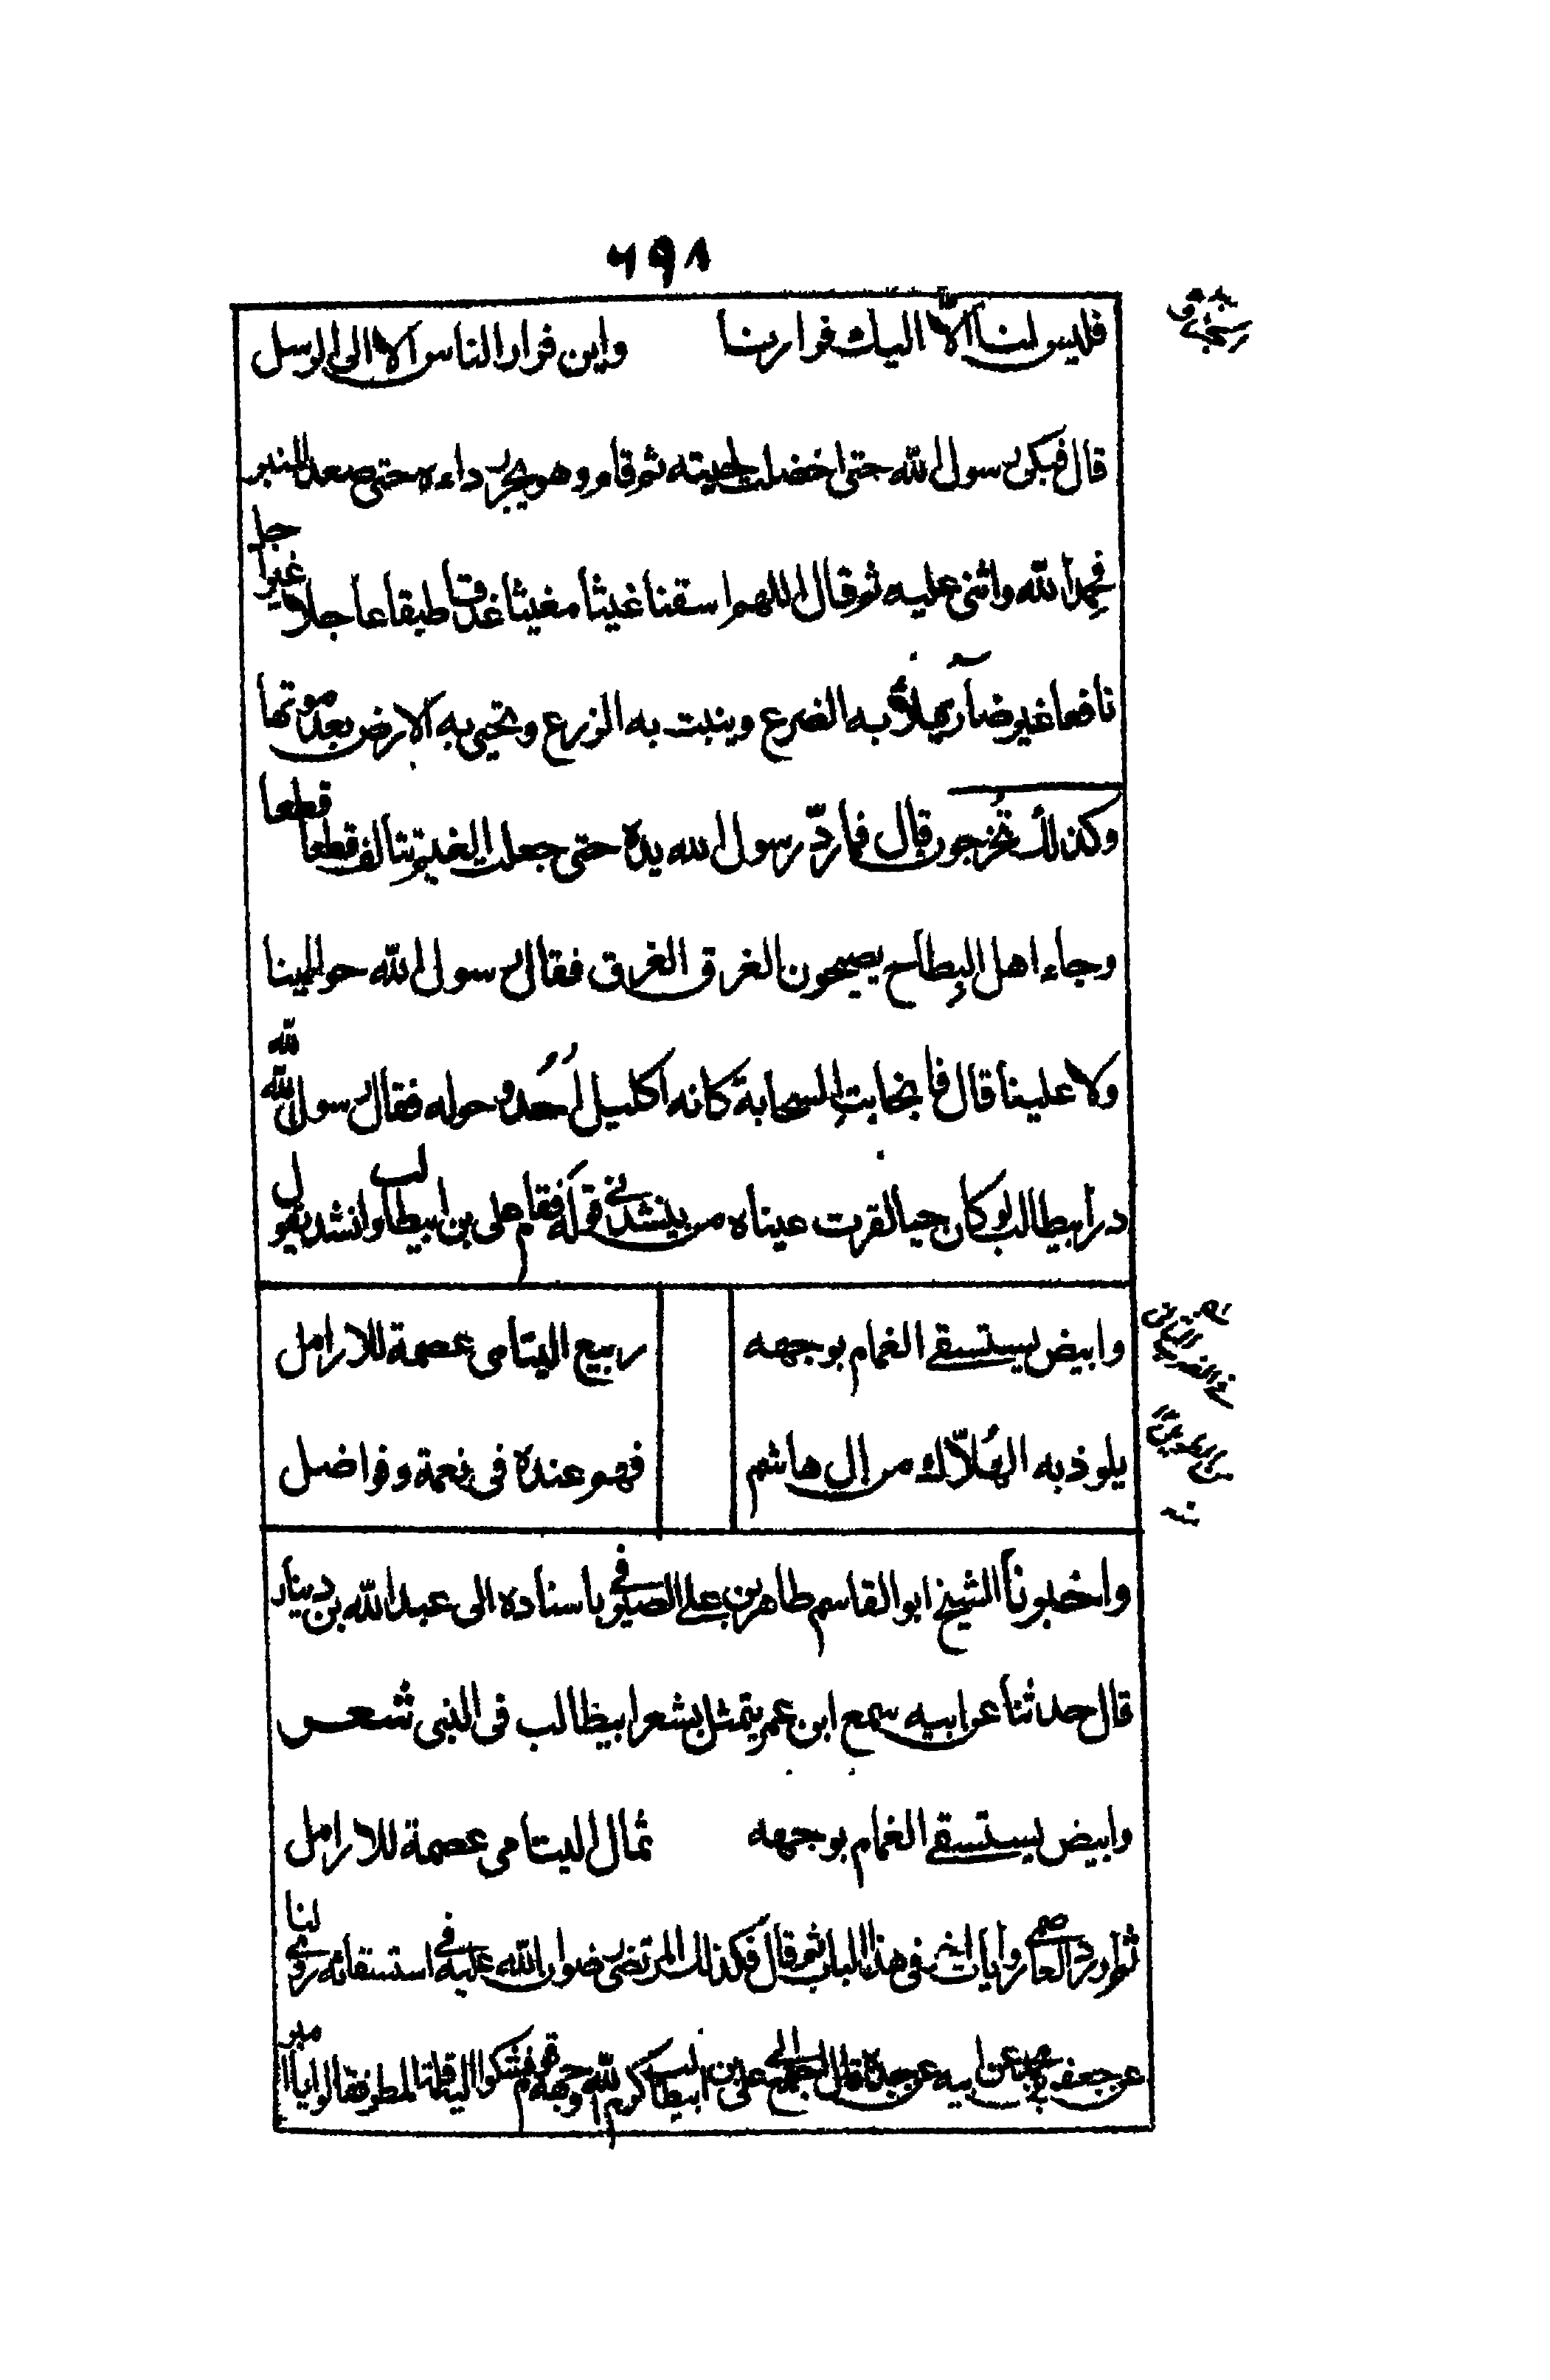 ٦٩٨
فليس لنا الّا اليك فرارنا واين فرار الناس الا الى الرسل
قال فبكى رسول الله حتى اخضلت لحيته ثم قام وهو يجر رداءه حتى صعد المنبر
فحمد الله واثنى عليه ثم قال اللهم اسقنا غيثا مغيثا غدقا طبقا عاجلا غير اجل
نافعا غير ضآر يملأ به الضرع وينبت به الزرع وتحيى به الارض بعد موتها
وكذلك تُخرجون قال فما ردّ رسول الله يده حتى جعلت الغيوم تتالف قطعا قطعا
وجاء اهل البطاح يصيحون الغرق الغرق فقال رسول الله حوالينا
ولا علينا قال فانجابت السحابة كانه اكليل اُحُد وحوله فقال رسول الله لله
در ابيطالب لو كان حيا لقرت عيناه من ينشدني قوله فقام على بن ابيطالب وانشد يقول
وابيض يستسقى الغمام بوجهه ربيع اليتامى عصمة للارامل
يلوذ به الهُلاّك من ال هاشم فهو عنده فى نعمة وفواضل
واخبرنا الشيخ ابو القاسم طاهر بن على الصيرفى باسناده الى عبد الله بن دينار
قال حدثنا عن ابيه سمع ابن عمر يتمثل بشعر ابيطالب فى النبى شعر
وابيض يستسقى الغمام بوجهه ثمال اليتامى عصمة للارامل
ثم اورد العاصمى روايات اخر فى هذا الباب ثم قال فكذلك المرتضى رضوان الله عليه فى استسقائه روى لنا
عن جعفر بن محمد عن ابيه عن جده قال على بن ابيطالب كرم الله وجهه قوم فشكوا اليه قلة المطر فقالوا يا امير